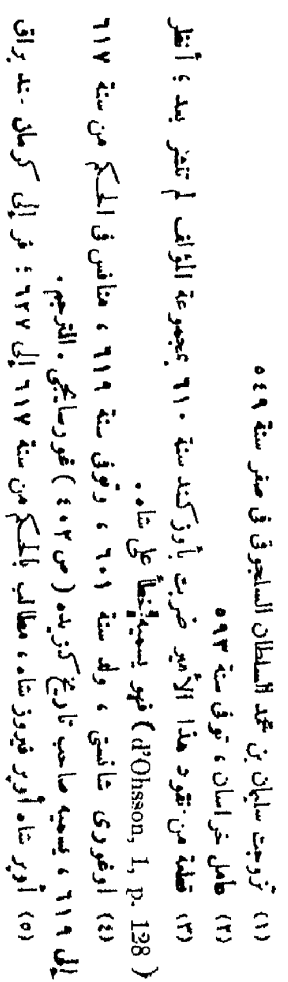 (١) تزوجت سليمان بن محمد السلطان السلجوقى فى صفر سنة ٥٤٩
(٢) عامل خراسان ، توفى سنة ٥٩٣
(٣) قطعة من نقود هذا الأمير ضربت بأوزكند سنة ٦١٠ بمجموعة المؤلف لم تنشر بعد ؛ أنظر
(d'Ohsson, 1, p. 128) فهو يسميه خطأ على شاه .
(٤) اوغورى شانستى ، ولد سنة ٦٠١ ، وتوفى سنة ٦١٩ ، منافس فى الحكم من سنة ٦١٧
إلى ٦١٩ ، يسميه صاحب تاريخ كزيده (ص ٤٠٢) غورسايجى . المترجم .
(٥) أوير شاه أوير فيروز شاه ، مطالب بالحكم من سنة ٦١٧ إلى ٦٢٧ ؛ فر إلى كرمان عند براق